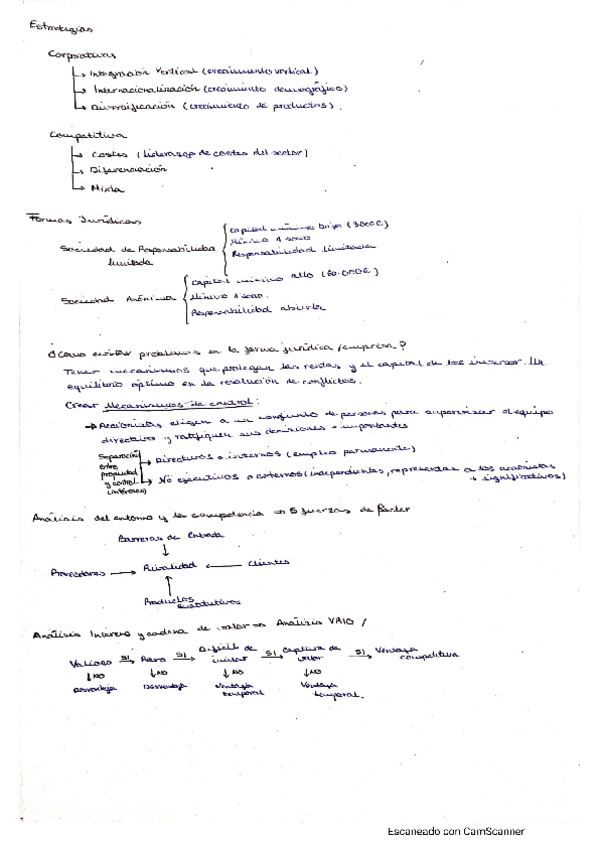 Estrategias
Corporativas
↳ Integración Vertical (crecimiento vertical)
↳ Internacionalización (crecimiento demográfico)
↳ Diversificación (crecimiento de productos).
Competitiva
↳ Costes (liderazgo de costes del sector)
↳ Diferenciación
↳ Mixta
Formas Jurídicas
Sociedad de Responsabilidad limitada
Capital mínimo bajo (3000€)
Mínimo 1 socio
Responsabilidad limitada
Sociedad Anónima
Capital mínimo alto (60.000€)
Mínimo 1 socio.
Responsabilidad abierta
¿Cómo evitar problemas en la forma jurídica/empresa?
Tener mecanismos que protegan las rentas y el capital de los inversor. Un
equilibrio óptimo en la resolución de conflictos.
Crear Mecanismos de control:
→ Accionistas eligen a un conjunto de personas para supervisar el equipo
directivo y ratifiquen sus decisiones + importantes
Separación entre propiedad y control
→ Directivos o internos (empleo permanente)
→ No ejecutivos o externos (independientes, representan a los accionistas
+ significativos)
Análisis del entorno y la competencia => 5 fuerzas de Porter
Barreras de Entrada
↓
Proveedores → Rivalidad ← Clientes
↑
Productos sustitutivos
Análisis Interno y cadena de valor => Análisis VRIO /
Valioso SI→ Raro SI→ Difícil de imitar SI→ Captura de valor SI→ Ventaja competitiva
↓NO ↓NO ↓NO ↓NO
Desventaja Desventaja Ventaja temporal Ventaja temporal.
Escaneado con CamScanner